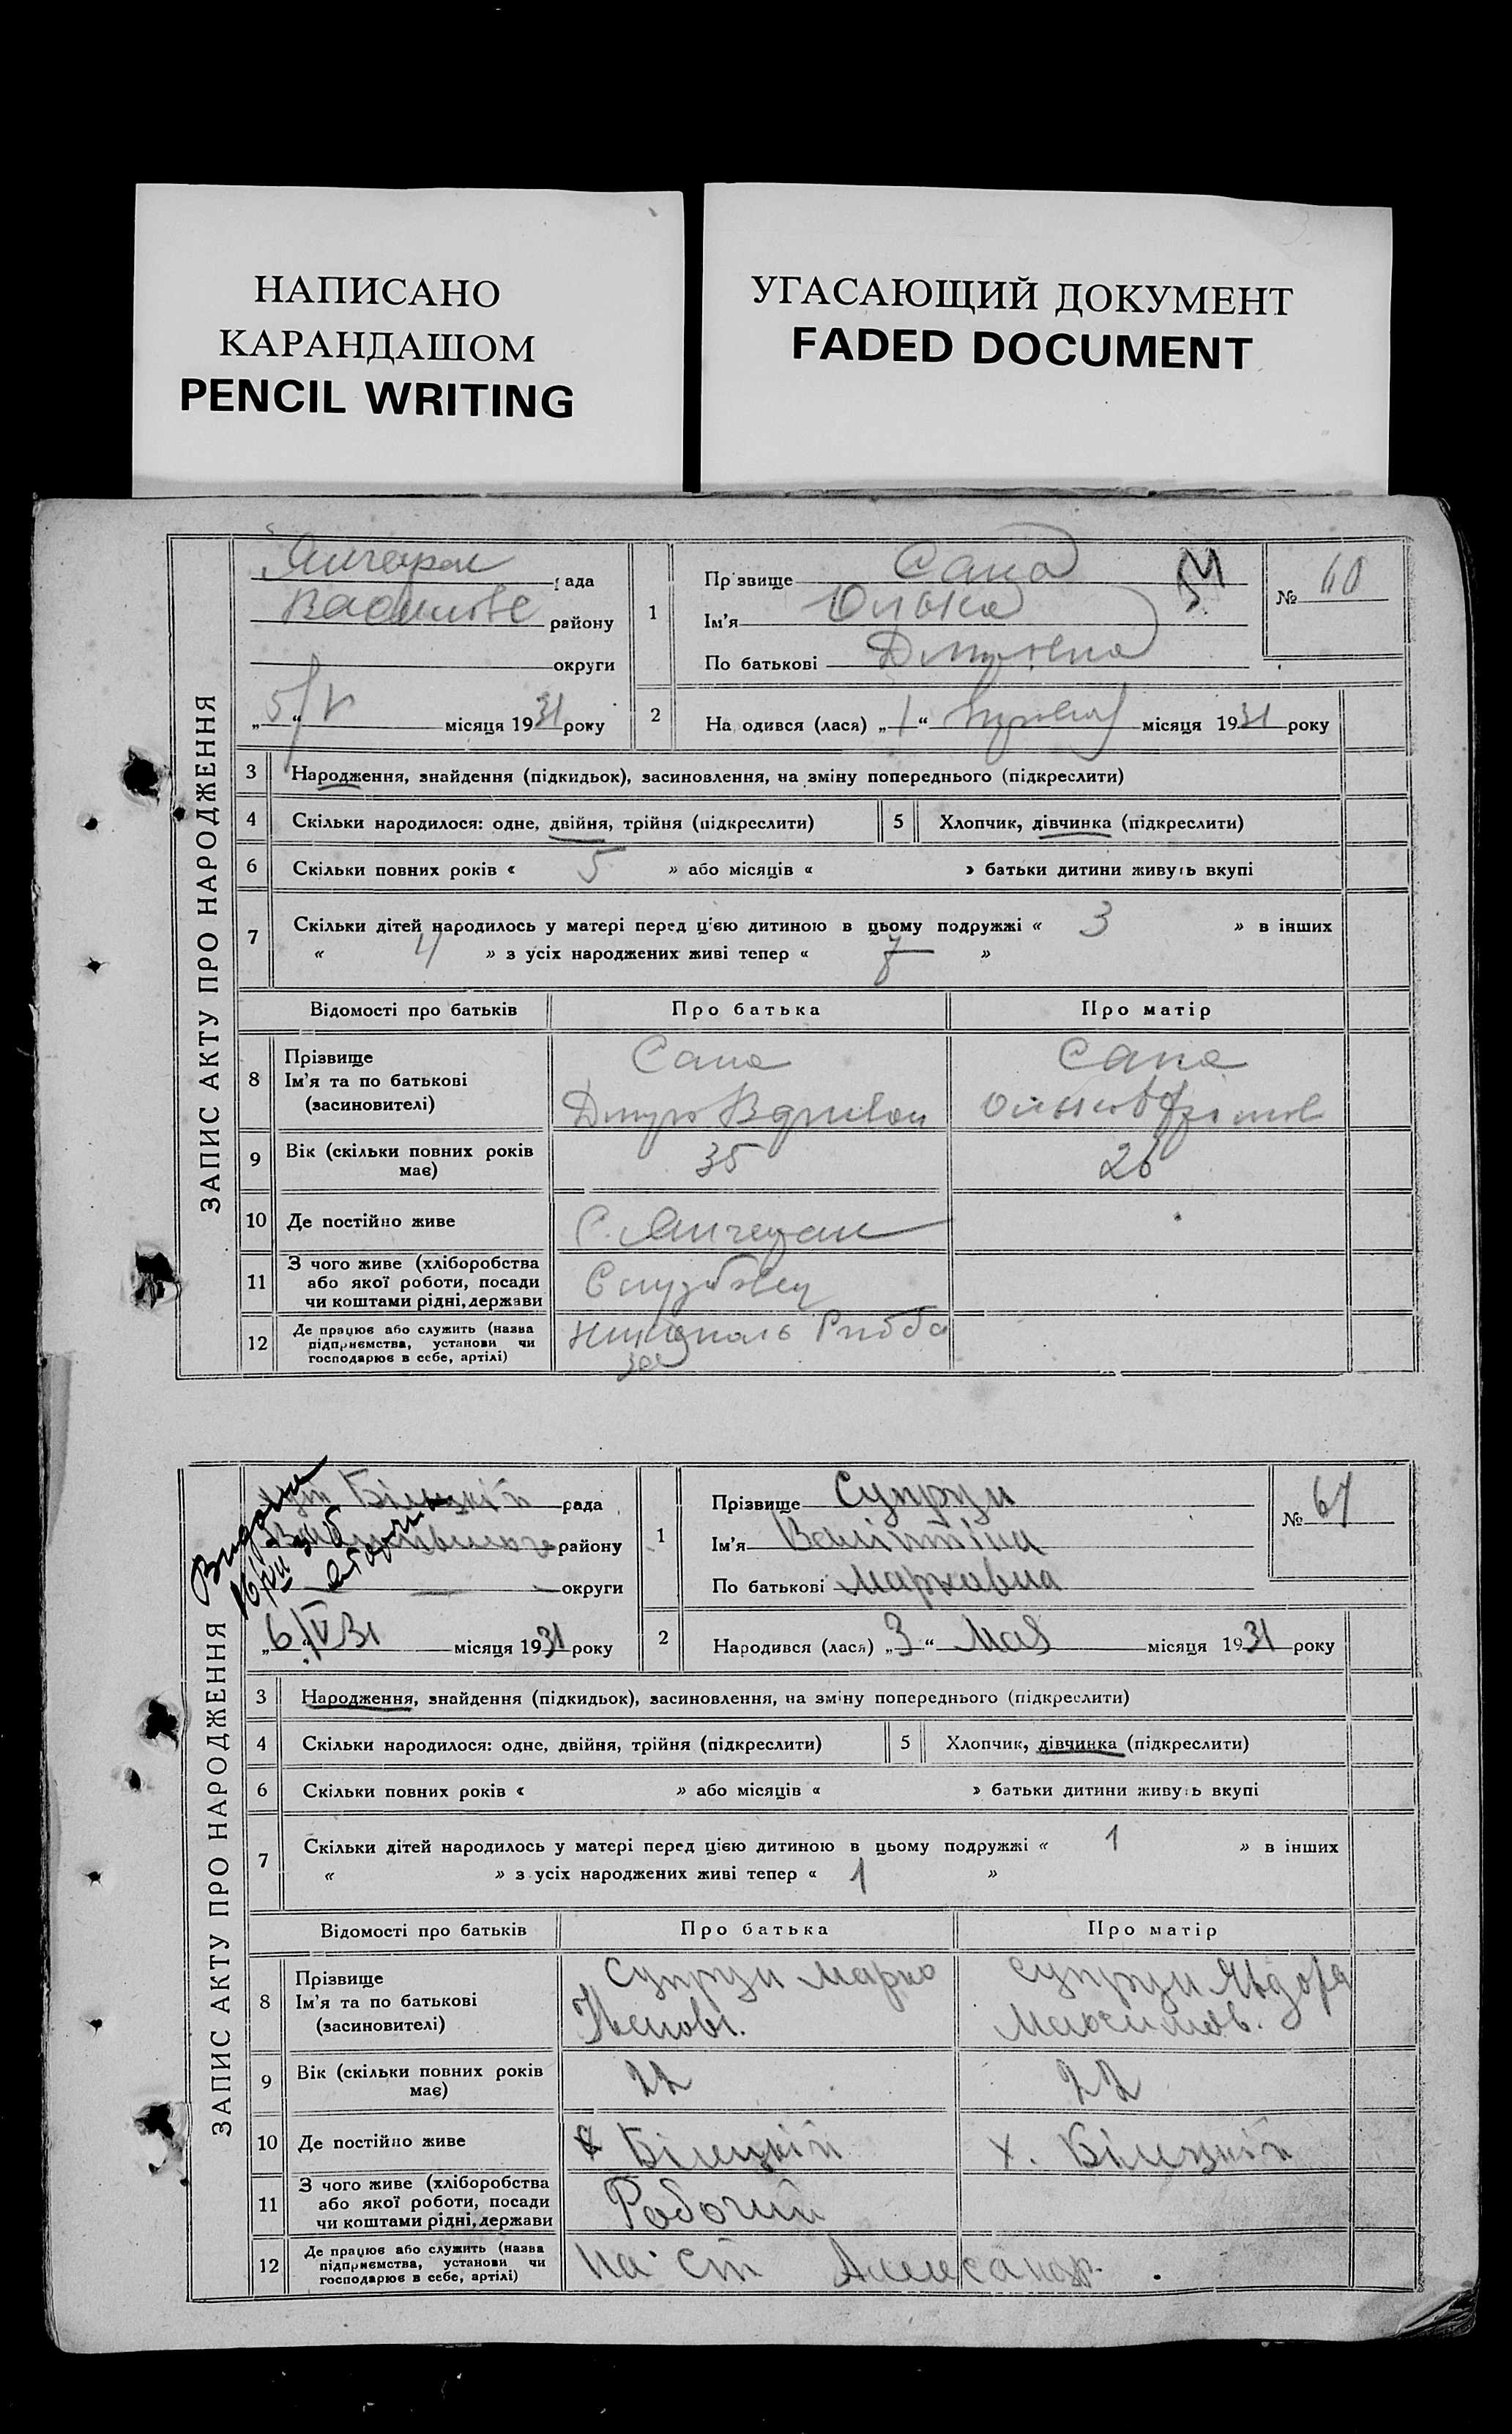 НАПИСАНО
КАРАНДАШОМ
PENCIL WRITING
УГАСАЮЩИЙ ДОКУМЕНТ
FADED DOCUMENT
ЗАПИС АКТУ ПРО НАРОДЖЕННЯ
рада
району
округи
5/V місяця 1931 року
1
Прізвище Сапа
Ім'я Юлька
По батькові
№ 60
2
На одився (лася) „1“ місяця 1931 року
3 Народження, знайдення (підкидьок), засиновлення, на зміну попереднього (підкреслити)
4 Скільки народилося: одне, двійня, трійня (підкреслити) 5 Хлопчик, дівчинка (підкреслити)
6 Скільки повних років « 5 » або місяців « » батьки дитини живуть вкупі
7 Скільки дітей народилось у матері перед цією дитиною в цьому подружжі « 3 » в інших
« 4 » з усіх народжених живі тепер « 7 »
Відомості про батьків Про батька Про матір
8 Прізвище Сапа Сапа
Ім'я та по батькові
(засиновителі) Дмитро
9 Вік (скільки повних років має) 35 26
10 Де постійно живе С.
11 З чого живе (хліборобства
або якої роботи, посади
чи коштами рідні, держави
12 Де працює або служить (назва
підприємства, установи чи
господарює в себе, артілі)
ЗАПИС АКТУ ПРО НАРОДЖЕННЯ
хут Білецкій рада
району
округи
6/V 31 місяця 1931 року
1
Прізвище Супрун
Ім'я Валінтіна
По батькові Марковна
№ 61
2
Народився (лася) „3“ Мая місяця 1931 року
3 Народження, знайдення (підкидьок), засиновлення, на зміну попереднього (підкреслити)
4 Скільки народилося: одне, двійня, трійня (підкреслити) 5 Хлопчик, дівчинка (підкреслити)
6 Скільки повних років « » або місяців « » батьки дитини живуть вкупі
7 Скільки дітей народилось у матері перед цією дитиною в цьому подружжі « 1 » в інших
« » з усіх народжених живі тепер « 1 »
Відомості про батьків Про батька Про матір
8 Прізвище Супрун Марко Супрун Явдоха
Ім'я та по батькові Максимов.
(засиновителі)
9 Вік (скільки повних років має) 22 22
10 Де постійно живе х Білецкій х. Білецкій
11 З чого живе (хліборобства
або якої роботи, посади Робочий
чи коштами рідні, держави
12 Де працює або служить (назва
підприємства, установи чи на ст Александр.
господарює в себе, артілі)